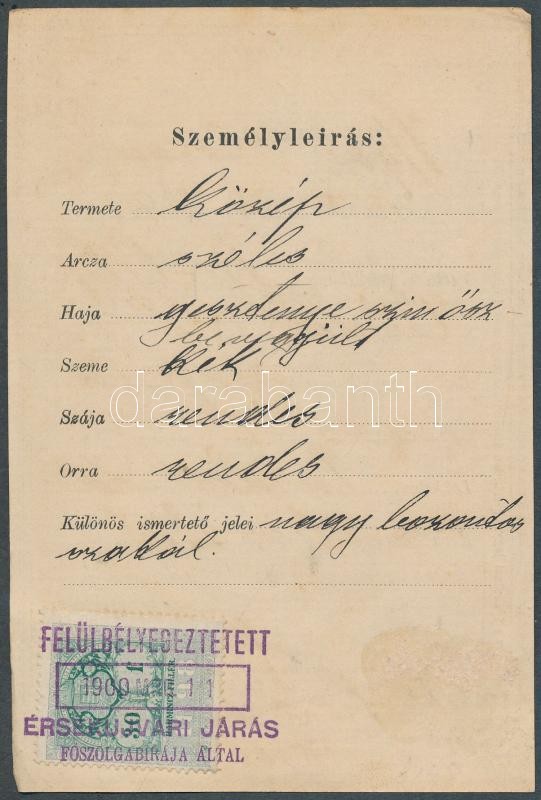 Személyleirás:
Termete közép
Arcza széles
Haja gesztenye szin ősz-
be vegyült
Szeme kék
Szája rendes
Orra rendes
Különös ismertető jelei nagy bozontos
szakál.
darabanth
FELÜLBÉLYEGEZTETETT
1900 11
ÉRSEKUJVÁRI JÁRÁS
FŐSZOLGABIRÁJA ÁLTAL
30 1